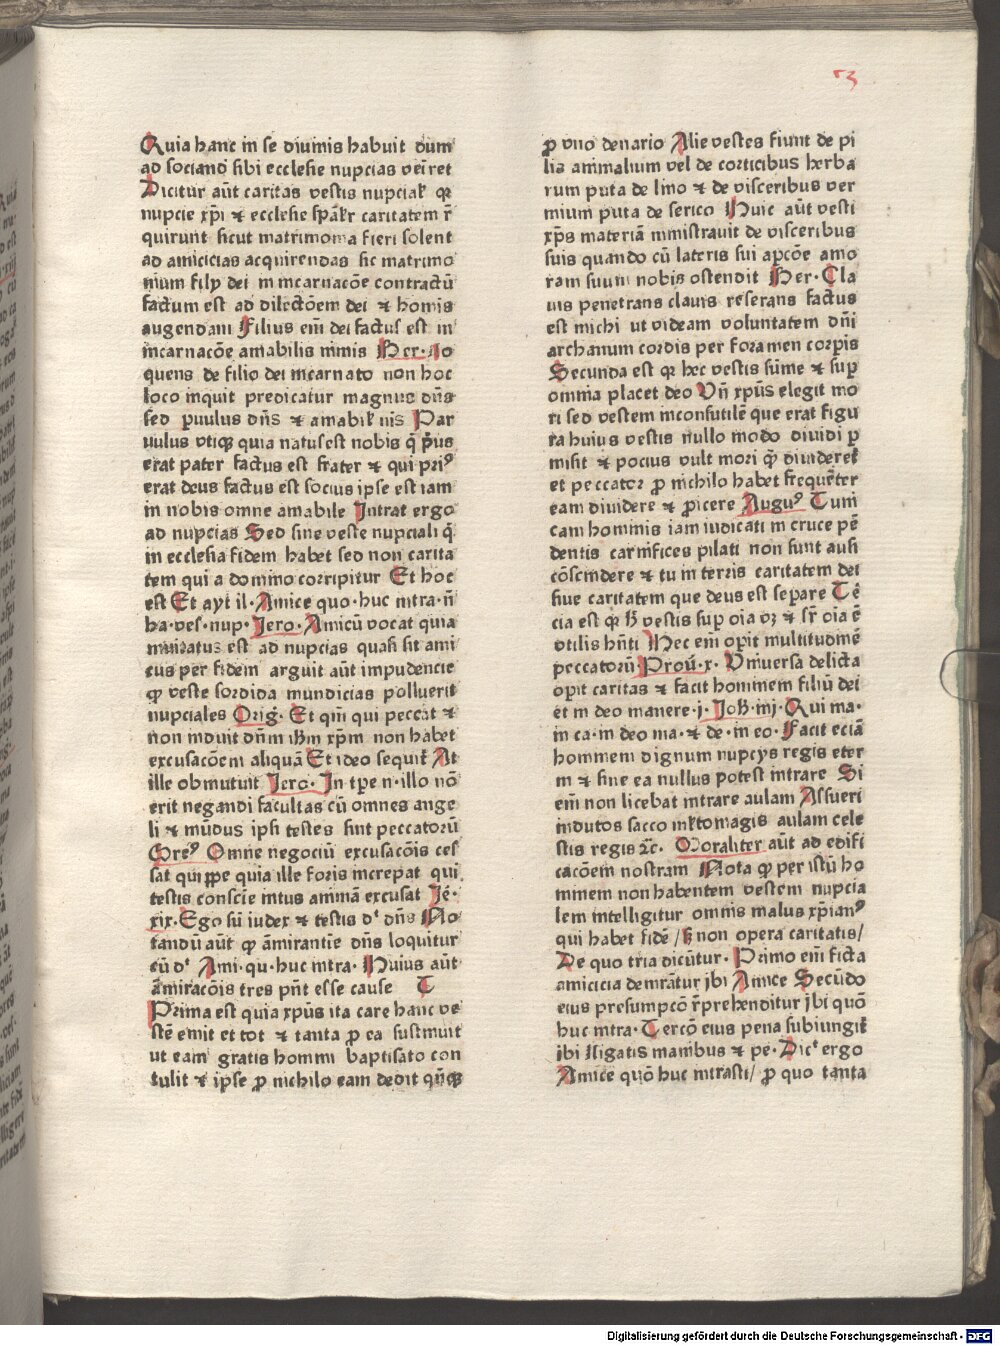 53
Quia hanc in se diuinis habuit dum
ad sociand̄ sibi ecclesie nupcias veīret
Dicitur aūt caritas vestis nupcial' qꝛ
nupcie xp̄i ⁊ ecclesie sp̄aĺr caritatem r̄
quirunt sicut matrimonia fieri solent
ad amicicias acquirendas sic matrimo
nium filij dei in incarnacōe contractū
factum est ad dilectōem dei ⁊ homīs
augendam Filius em̄ dei factus est in
incarnacōe amabilis nimis Ber. lo
quens de filio dei incarnato non hoc
loco inquit predicatur magnus dn̄s
sed paruulus dn̄s ⁊ amabil' nīs Par
uulus vtiqꝫ quia natus est nobis q̄ pͥus
erat pater factus est frater ⁊ qui priꝰ
erat deus factus est socius ipse est iam
in nobis omne amabile Intrat ergo
ad nupcias Sed sine veste nupciali q̄
in ecclesia fidem habet sed non carita
tem qui a domino corripitur Et hoc
est Et ayt il. Amice quo. huc intra. n̄
ha. ves. nup. Jero. Amicū vocat quia
inuitatus est ad nupcias quasi sit ami
cus per fidem arguit aūt impudencie
ꝙ veste sordida mundicias polluerit
nupciales Orig̕. Et qm̄ qui peccat ⁊
non induit dn̄m ihm xp̄m non habet
excusacōem aliquā Et ideo sequit̕ At
ille obmutuit Jero. In tp̄e n. illo nō
erit negandi facultas cū omnes ange
li ⁊ mūdus ipsi testes sint peccatorū
Greꝰ Omne negociū excusacōis ces
sat quippe quia ille foris increpat qui
testis conscīe intus animā excusat Jē.
xix. Ego sū iudex ⁊ testis dᵗ dn̄s No
tandū aūt ꝙ āmirantīe dn̄s loquitur
cū dᵗ Ami. qu. huc intra. Huius aūt
āmiracōis tres pn̄t esse cause T
Prima est quia xp̄us ita care hanc ve
stē emit et tot ⁊ tanta ꝓ ea sustinuit
ut eam gratis homini baptisato con
tulit ⁊ ipse ꝓ nichilo eam dedit qn̄qꝫ
ꝓ vno denario Alie vestes fiunt de pi
lis animalium vel de corticibus herba
rum puta de lino ⁊ de visceribus ver
mium puta de serico Huic aūt vesti
xp̄s materiā ministrauit de visceribus
suis quando cū lateris sui apcōe amo
ram suum nobis ostendit Ber. Cla
uis penetrans clauis reserans factus
est michi ut videam voluntatem dn̄i
archanum cordis per foramen corpīs
Secunda est qꝛ hec vestis sūme ⁊ sup̄
omnia placet deo Vn̄ xp̄us elegit mo
ri sed vestem inconsutilē que erat figu
ra huius vestis nullo modo diuidi ꝑ
misit ⁊ pocius vult mori q̄ȝ diuideret̕
et peccator ꝓ nichilo habet frequēter
eam diuidere ⁊ ꝓicere Auguꝰ Tuni
cam hominis iam iudicati in cruce pē
dentis carnifices pilati non sunt ausi
cōscindere ⁊ tu in terris caritatem dei
siue caritatem que deus est separe Tē
cia est qꝛ h̄ vestis sup̄ oīa vꝫ ⁊ sr̄ oīa ē
vtilis hn̄ti Nec em̄ oꝑit multitudinē
peccatorū Prou̕. x. Vniuersa delicta
oꝑit caritas ⁊ facit hominem filiū dei
et in deo manere. j. Joh̄. iiij. Qui ma.
in ca. in deo ma. ⁊ de. in eo. Facit eciā
hominem dignum nupcijs regis eter
ni ⁊ sine ea nullus potest intrare Si
em̄ non licebat intrare aulam Assueri
indutos sacco mlʼtomagis aulam cele
stis regis ⁊c̄. Moraliter aūt ad edifi
cacōem nostram Nota ꝙ per istū ho
minem non habentem vestem nupcia
lem intelligitur omnis malus xp̄ianꝰ
qui habet fidē / sꝫ non opera caritatis /
De quo tria dicūtur. Primo em̄ ficta
amicicia demr̄atur ibi Amice Secūdo
eius presumpcō rr̄prehenditur ibi quō
huc intra. Tercō eius pena subiungit̕
ibi Iligatis manibus ⁊ pe. Dicᵗ ergo
Amice quō huc intrasti / ꝓ quo tanta
Digitalisierung gefördert durch die Deutsche Forschungsgemeinschaft - DFG